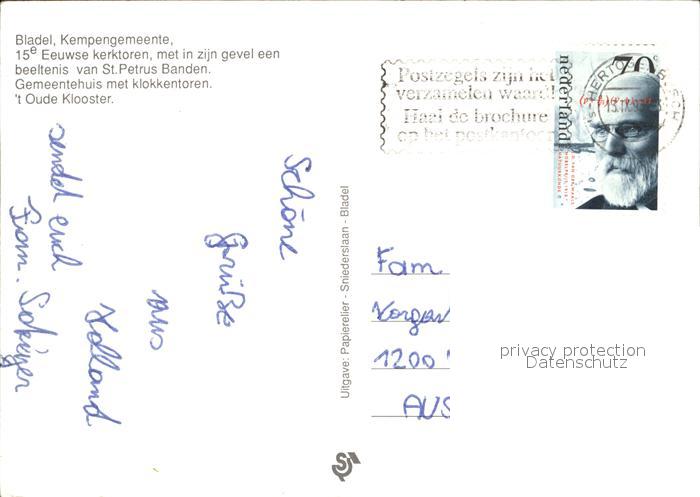 Bladel, Kempengemeente,
15e Eeuwse kerktoren, met in zijn gevel een
beeltenis van St.Petrus Banden.
Gemeentehuis met klokkentoren.
't Oude Klooster.
Schöne
Grüße
aus
Holland
sendet euch
Fam.
Uitgave: Papierelier - Sniederslaan - Bladel
Postzegels zijn het
verzamelen waard!
Haal de brochure
op het postkantoor
70c
nederland
Fam.
1200
AUS
privacy protection
Datenschutz